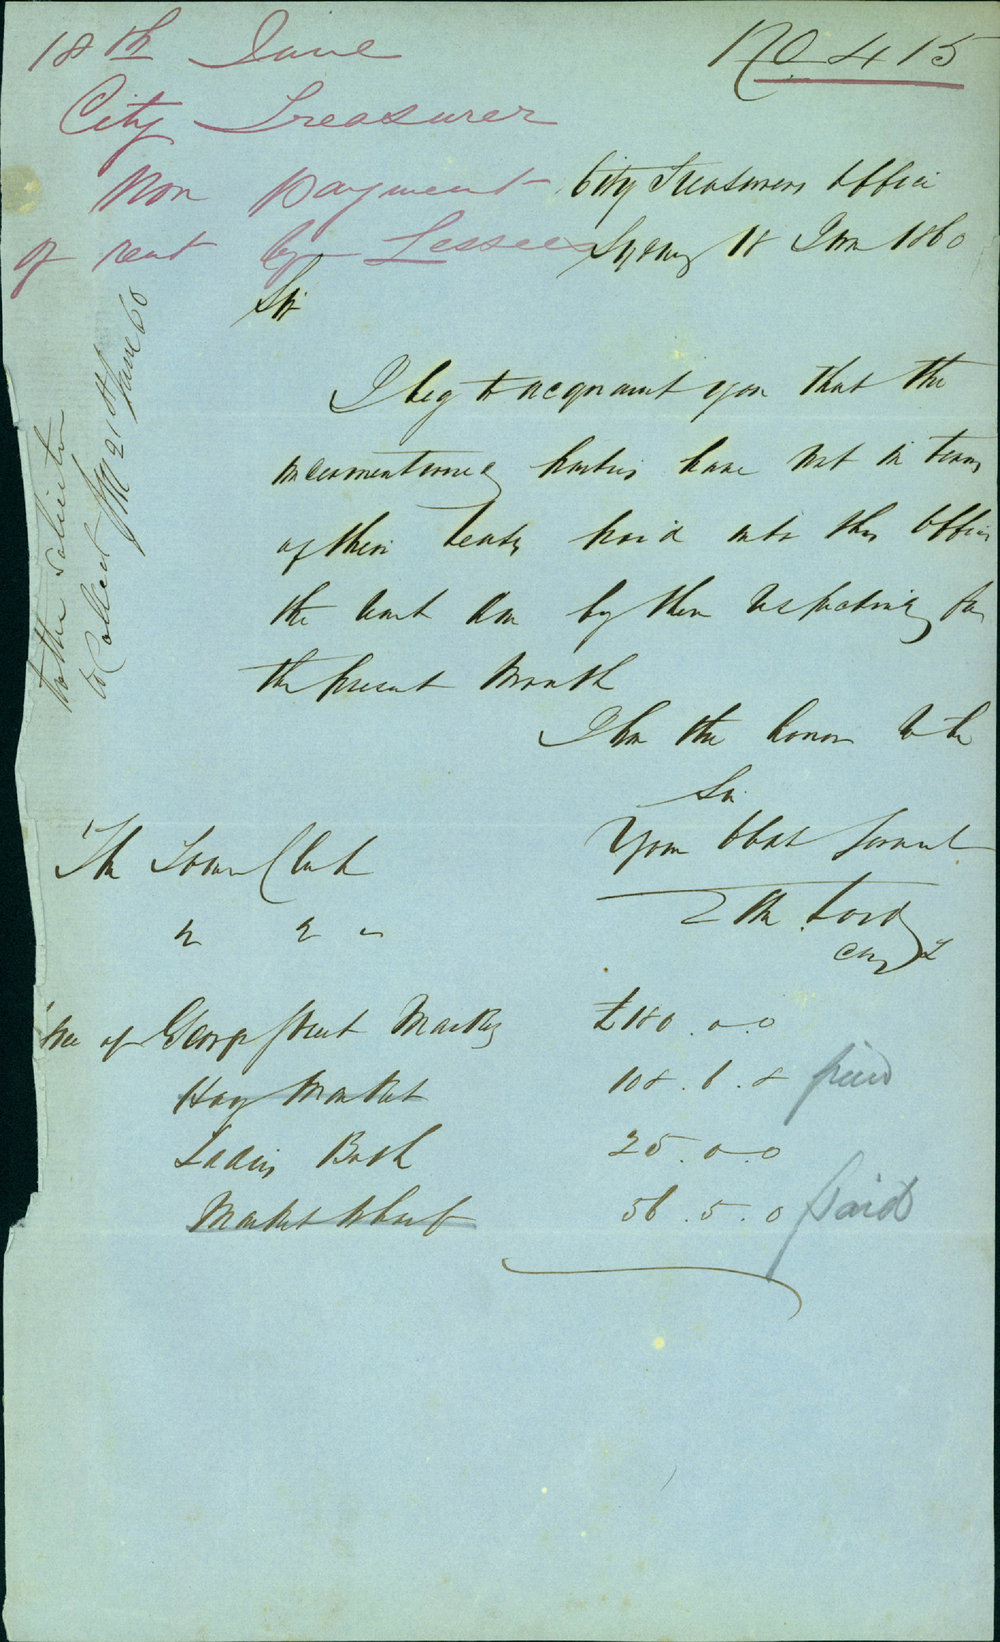 No 415
18th June
City Treasurer
Non payment
of rent by Lessees
City Treasurers Office
Sydney 18 June 1860
Sir
I beg to acquaint you that the
undermentioned parties have not in terms
of their leases paid into this Office
the rent due by them respectively for
the present Month
I have the honor to be
Sir
Your Obdt Servant
The Town Clerk
City T
to the Solicitor
to Collect 21st June 60
of George Street Market £180.0.0
Hay Market 108.6.8 paid
Ladies Bath 25.0.0
Market Wharf 56.5.0 paid